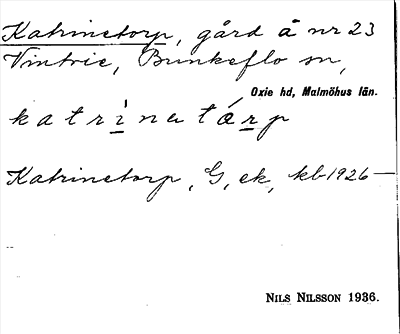 Katrinetorp, gård å nr 23
Vintrie, Bunkeflo sn,
Oxie hd, Malmöhus län.
katrinatårp
Katrinetorp, G, ek, kb 1926—
NILS NILSSON 1936.